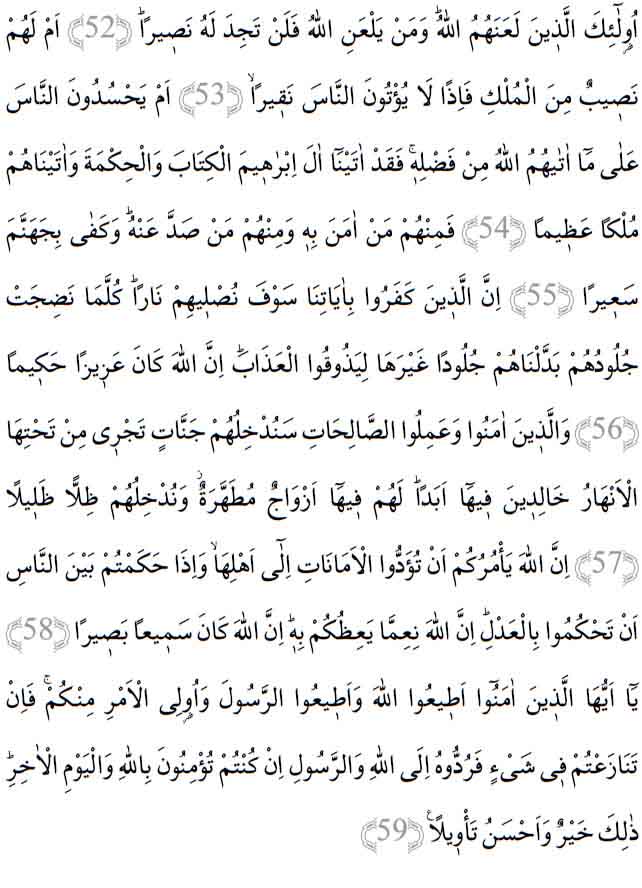 اُو۬لٰٓئِكَ الَّذ۪ينَ لَعَنَهُمُ اللّٰهُۜ وَمَنْ يَلْعَنِ اللّٰهُ فَلَنْ تَجِدَ لَهُ نَص۪يراًۜ ﴿52﴾ اَمْ لَهُمْ
نَص۪يبٌ مِنَ الْمُلْكِ فَاِذاً لَا يُؤْتُونَ النَّاسَ نَق۪يراًۙ ﴿53﴾ اَمْ يَحْسُدُونَ النَّاسَ
عَلٰى مَٓا اٰتٰيهُمُ اللّٰهُ مِنْ فَضْلِه۪ۚ فَقَدْ اٰتَيْنَٓا اٰلَ اِبْرٰه۪يمَ الْكِتَابَ وَالْحِكْمَةَ وَاٰتَيْنَاهُمْ
مُلْكاً عَظ۪يماً ﴿54﴾ فَمِنْهُمْ مَنْ اٰمَنَ بِه۪ وَمِنْهُمْ مَنْ صَدَّ عَنْهُۜ وَكَفٰى بِجَهَنَّمَ
سَع۪يرًا ﴿55﴾ اِنَّ الَّذ۪ينَ كَفَرُوا بِاٰيَاتِنَا سَوْفَ نُصْل۪يهِمْ نَاراًۜ كُلَّمَا نَضِجَتْ
جُلُودُهُمْ بَدَّلْنَاهُمْ جُلُودًا غَيْرَهَا لِيَذُوقُوا الْعَذَابَۜ اِنَّ اللّٰهَ كَانَ عَز۪يزًا حَك۪يماً
﴿56﴾ وَالَّذ۪ينَ اٰمَنُوا وَعَمِلُوا الصَّالِحَاتِ سَنُدْخِلُهُمْ جَنَّاتٍ تَجْر۪ى مِنْ تَحْتِهَا
الْاَنْهَارُ خَالِد۪ينَ ف۪يهَٓا اَبَداًۜ لَهُمْ ف۪يهَٓا اَزْوَاجٌ مُطَهَّرَةٌۘ وَنُدْخِلُهُمْ ظِلًّا ظَل۪يلًا
﴿57﴾ اِنَّ اللّٰهَ يَأْمُرُكُمْ اَنْ تُؤَدُّوا الْاَمَانَاتِ اِلٰٓى اَهْلِهَاۙ وَاِذَا حَكَمْتُمْ بَيْنَ النَّاسِ
اَنْ تَحْكُمُوا بِالْعَدْلِۜ اِنَّ اللّٰهَ نِعِمَّا يَعِظُكُمْ بِه۪ۜ اِنَّ اللّٰهَ كَانَ سَم۪يعاً بَص۪يرًا ﴿58﴾
يَٓا اَيُّهَا الَّذ۪ينَ اٰمَنُٓوا اَط۪يعُوا اللّٰهَ وَاَط۪يعُوا الرَّسُولَ وَاُو۬لِى الْاَمْرِ مِنْكُمْۚ فَاِنْ
تَنَازَعْتُمْ ف۪ى شَىْءٍ فَرُدُّوهُ اِلَى اللّٰهِ وَالرَّسُولِ اِنْ كُنْتُمْ تُؤْمِنُونَ بِاللّٰهِ وَالْيَوْمِ الْاٰخِرِۜ
ذٰلِكَ خَيْرٌ وَاَحْسَنُ تَأْو۪يلاًۚ ﴿59﴾